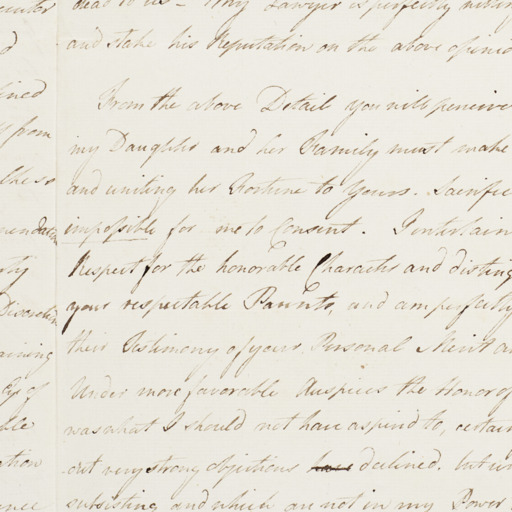 dead to us - My Lawyer is perfectly
and stake his Reputation on the above
From the above Detail you will
my Daughter and her Family must make
and uniting her Fortune to Yours.
impossible for me to Consent. I entertain
Respect for the honorable Character and
your respectable Parents, and am perfectly
their Testimony of your Personal Merit
Under more favorable Auspices the Honor of
was what I should not have aspired to,
out very strong objections have declined. but
subsisting and which are not in my Power
ined
from
rty
aining
of
ble